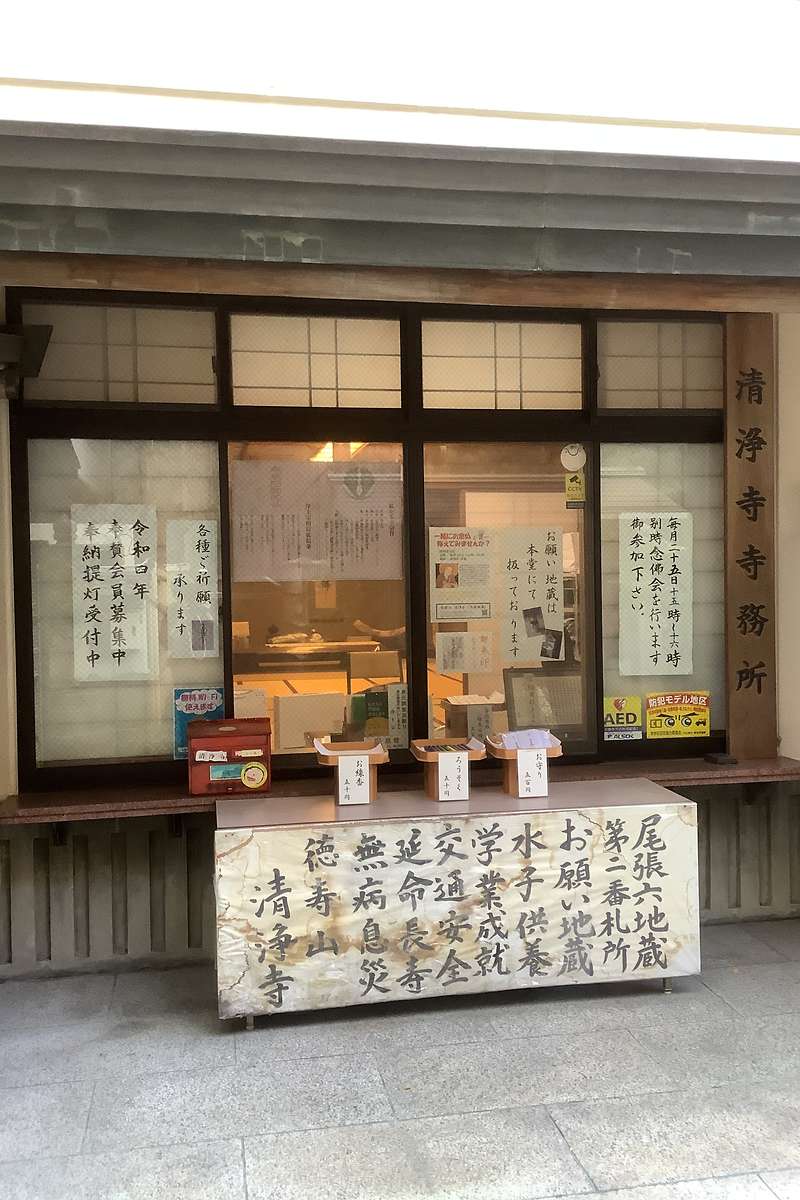 清浄寺寺務所
毎月二十五日十五時〜十六時
別時念佛会を行います
御参加下さい。
お願い地蔵は
本堂にて
扱っております
一緒にお念仏
称えてみませんか？
CCTV
各種ご祈願
承ります
令和四年
奉賛会員募集中
奉納提灯受付中
無料Wi-Fi
使えます
AED
ALSOK
防犯モデル地区
清浄寺
お線香
五十円
ろうそく
五十円
お守り
五百円
尾張六地蔵
第二番札所
お願い地蔵
水子供養
学業成就
交通安全
延命長寿
無病息災
徳寿山
清浄寺